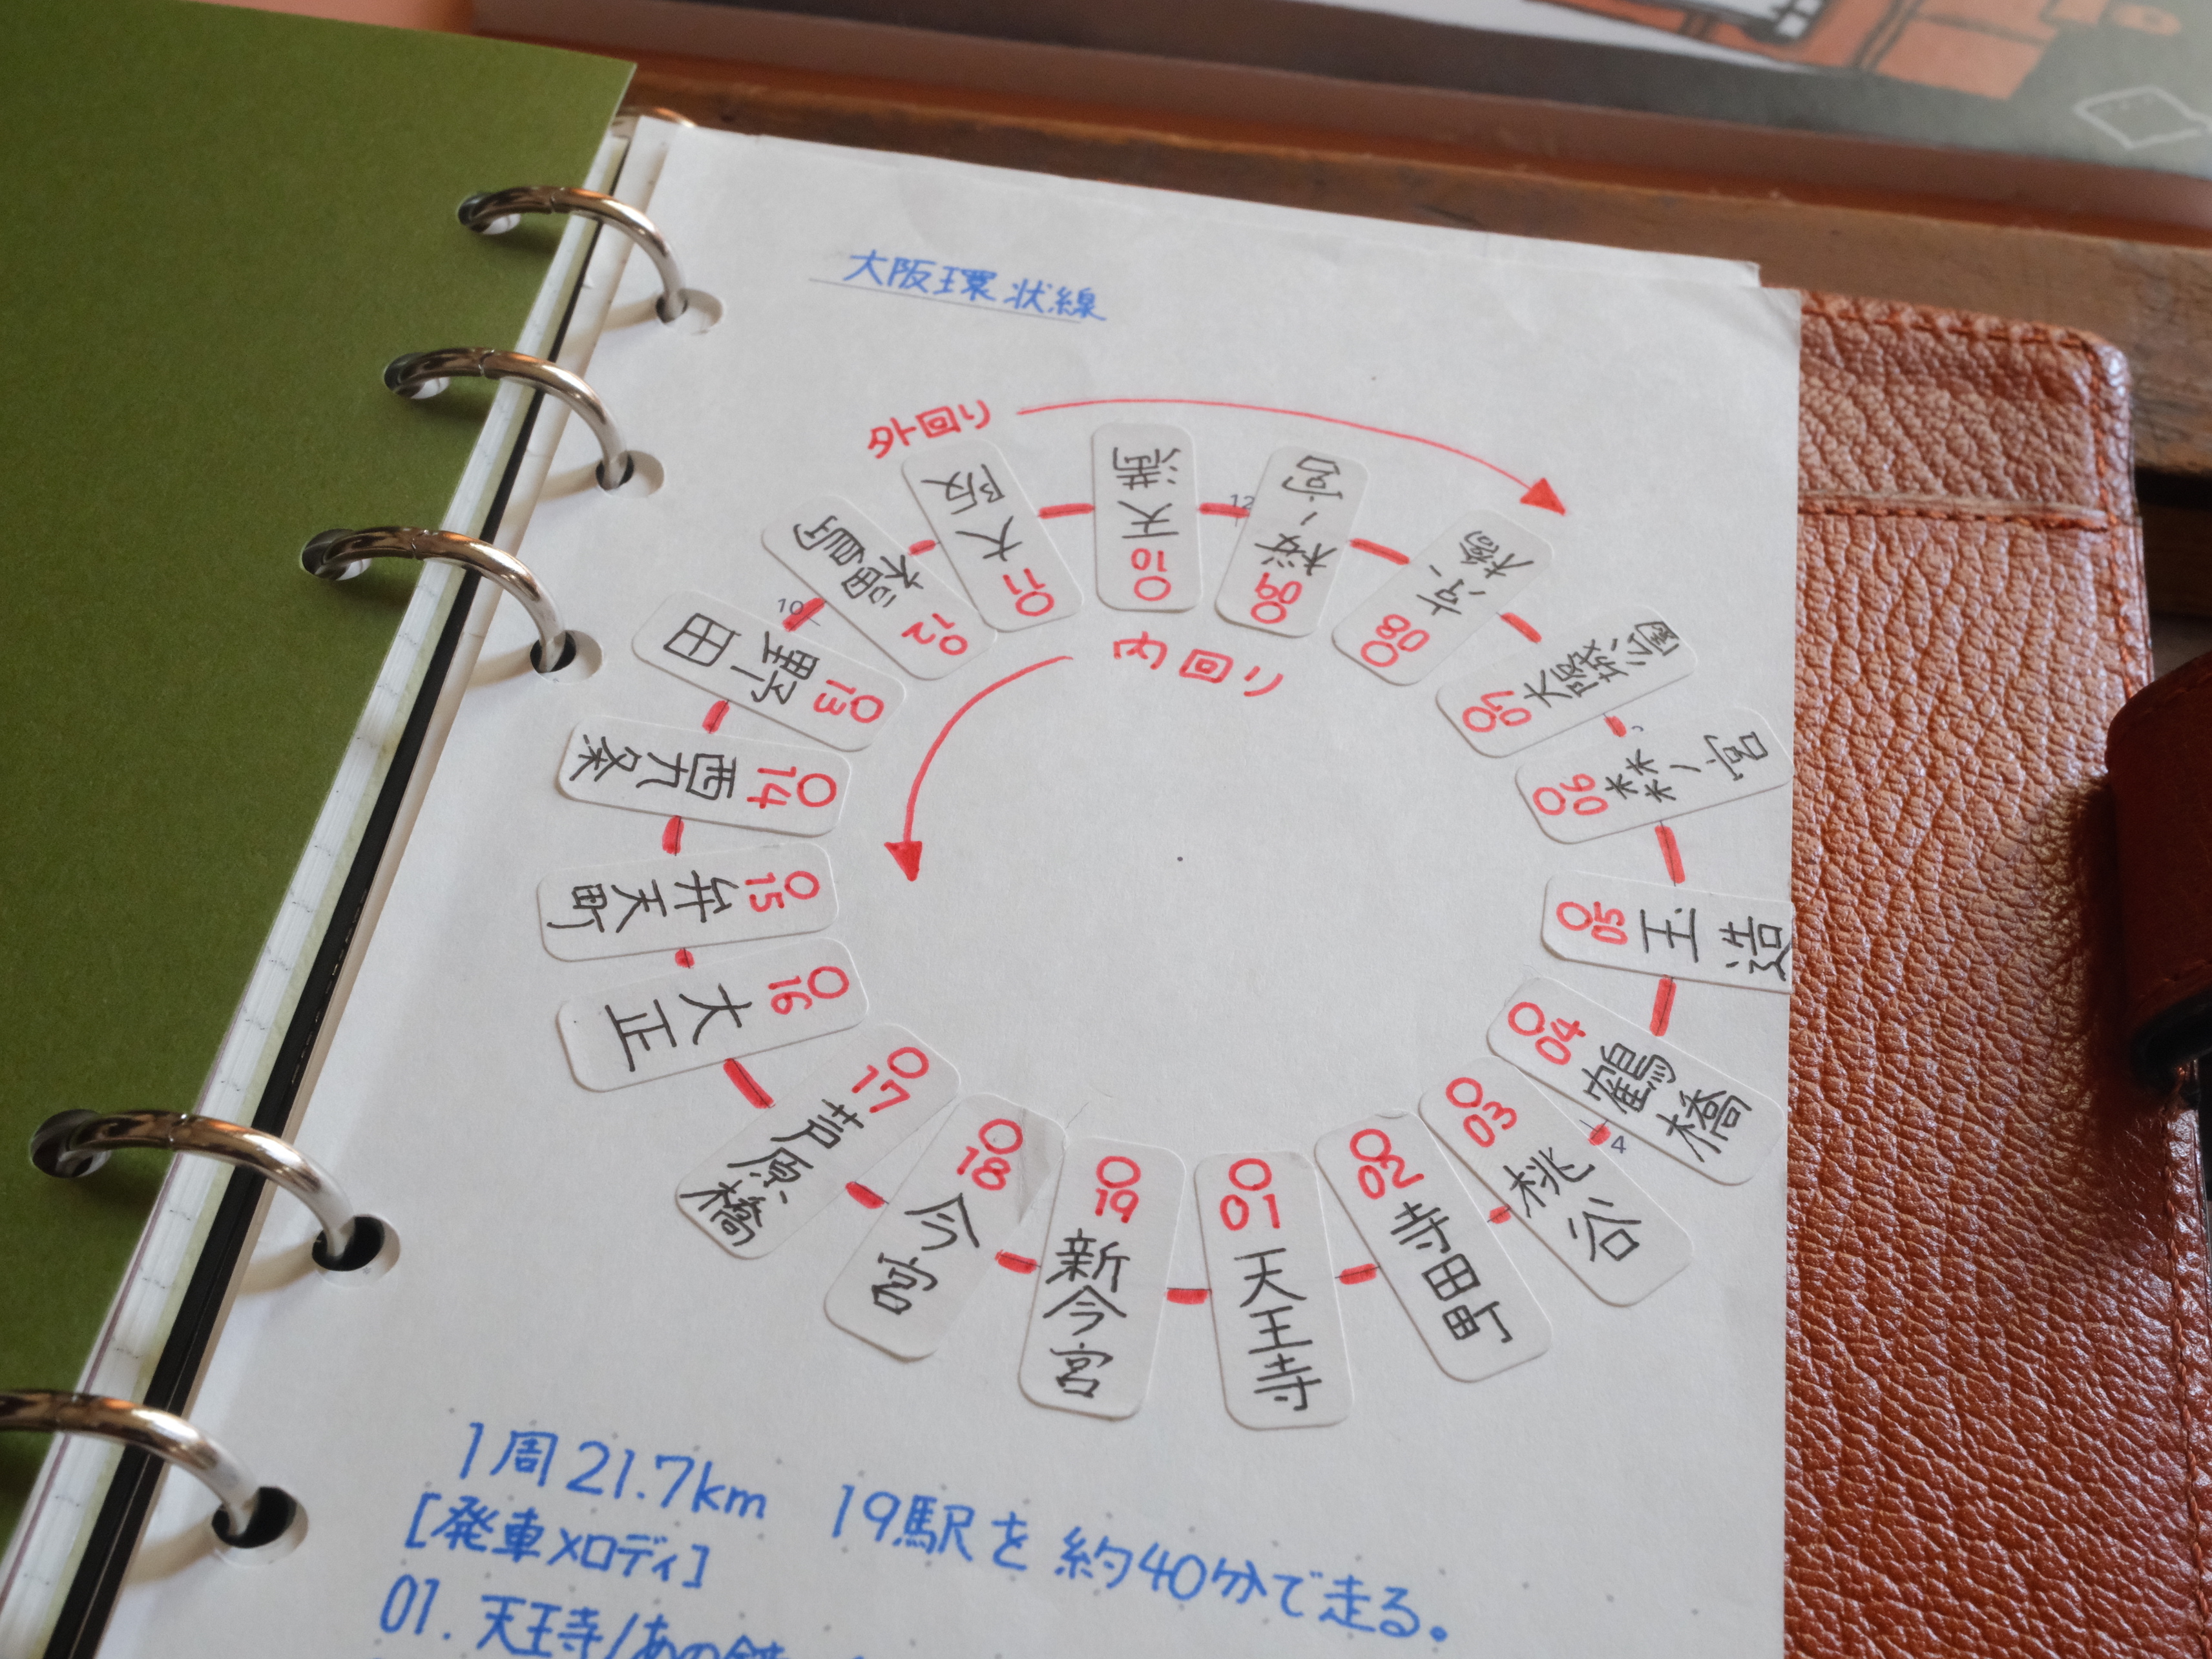 大阪環状線
外回り
内回り
O 01 天王寺
O 02 寺田町
O 03 桃谷
O 04 鶴橋
O 05 玉造
O 06 森ノ宮
O 07 大阪城公園
O 08 京橋
O 09 桜ノ宮
O 10 天満
O 11 大阪
O 12 福島
O 13 野田
O 14 西九条
O 15 弁天町
O 16 大正
O 17 芦原橋
O 18 今宮
O 19 新今宮
12
10
4
1周21.7km 19駅を約40分で走る。
[発車メロディ]
01. 天王寺/あの鐘